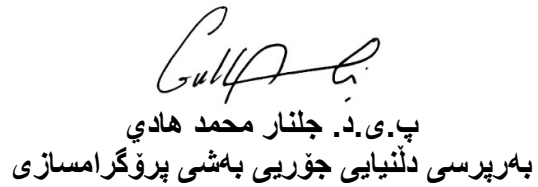 پ.ی.د. جلنار محمد هادي
بەرپرسی دڵنیایی جۆریی بەشی پرۆگرامسازی